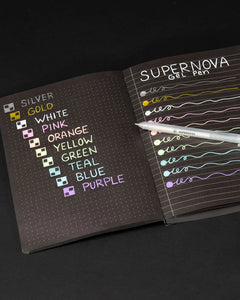 SILVER
GOLD
WHITE
PINK
ORANGE
YELLOW
GREEN
TEAL
BLUE
PURPLE
SUPERNOVA
Gel Pen